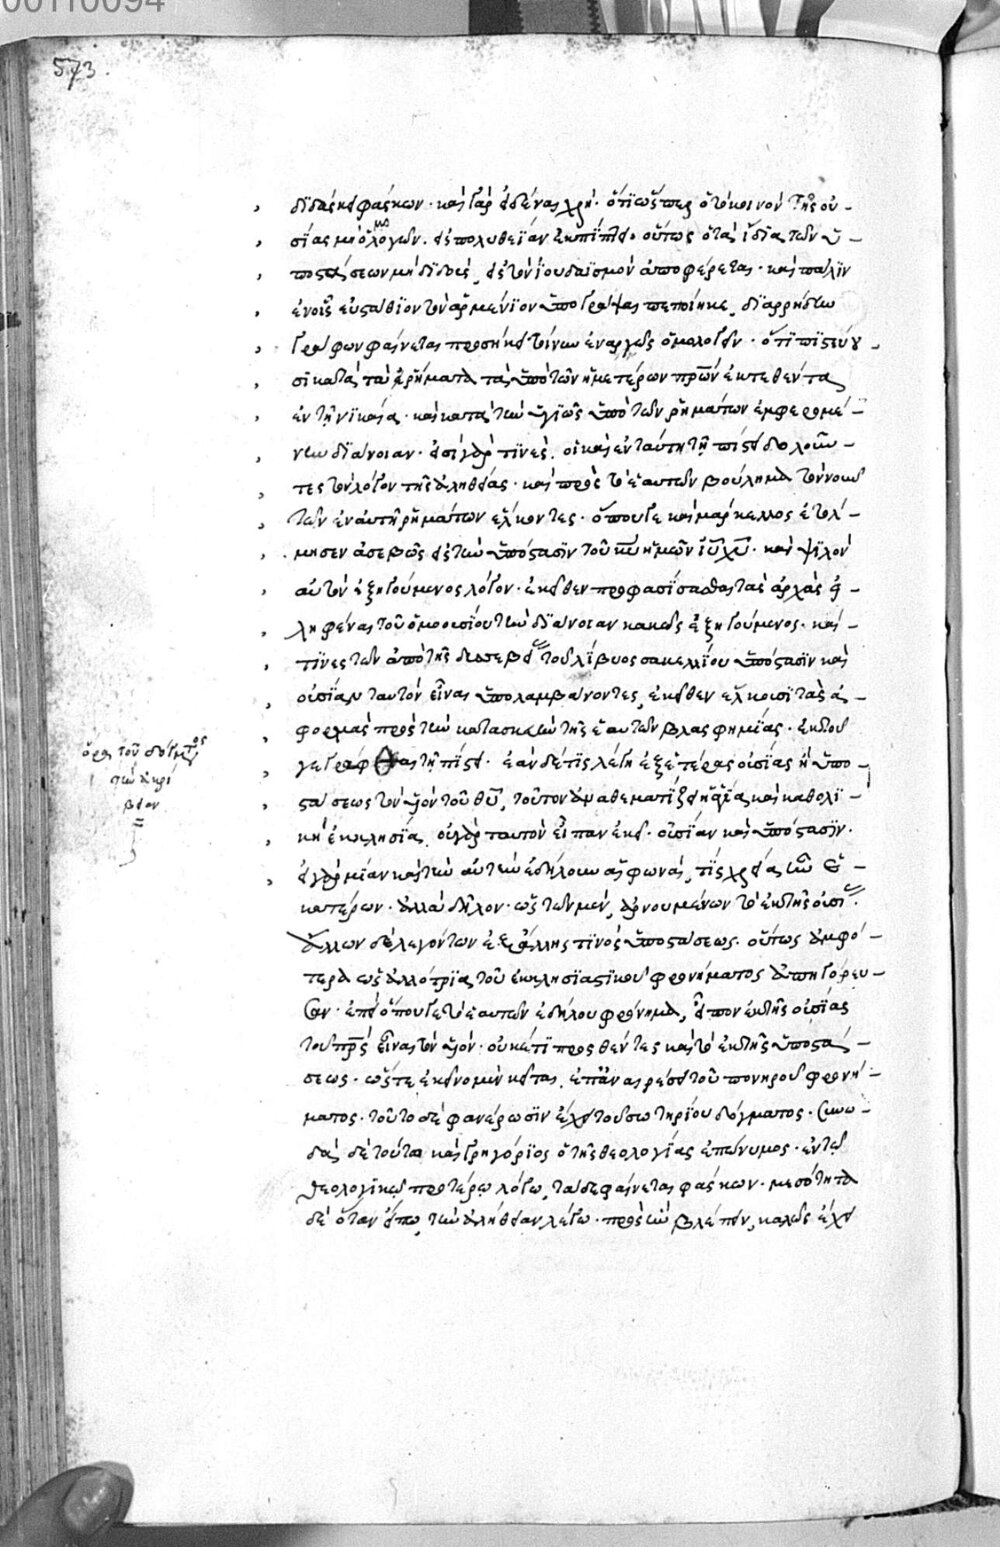 573
διδάσκει φάσκων· καὶ γὰρ εἰδέναι χρή· ὅτι ὥσπερ ὁ τὸ κοινὸν τῆς οὐ-
σίας μὴ ὁμολογῶν· εἰς πολυθεΐαν ἐκπίπτει· οὕτως ὁ τὰ ἴδια τῶν ὑ-
ποστάσεων μὴ διδοὺς, εἰς τὸν ἰουδαϊσμὸν ἀποφέρεται· καὶ πάλιν
ἐν οἷς εὐστάθιον τὸν ἀρμένιον ὑπογράψαι πεποίηκε, διαρρήδην
γράφων φαίνεται προσήκει τοίνυν ἐναργῶς ὁμολογεῖν· ὅτι πιστεύου-
σι κατὰ τὰ ῥήματα τὰ ὑπὸ τῶν πατέρων ἡμῶν ἐκτεθέντα
ἐν τῇ νικαίᾳ· καὶ κατὰ τὴν ὑγιῶς ὑπὸ τῶν ῥημάτων ἐμφερομέ-
νην διάνοιαν· εἰσὶ γάρ τινες, οἳ καὶ ἐν ταύτῃ τῇ πίστει δολοῦν-
τες τὸν λόγον τῆς ἀληθείας· καὶ πρὸς τὸ ἑαυτῶν βούλημα τὸν νοῦν
τῶν ἐν αὐτῇ ῥημάτων ἕλκοντες· ὅπου γε καὶ μάρκελλος ἐτόλ-
μησεν ἀσεβῶς εἰς τὴν ὑπόστασιν τοῦ κυ ἡμῶν ιυ χυ· καὶ ψιλὸν
αὐτὸν ἐξηγούμενος λόγον· ἐκεῖθεν προφασίσασθαι τὰς ἀρχὰς εἰ-
ληφέναι τοῦ ὁμοουσίου τὴν διάνοιαν κακῶς ἐξηγούμενος· καί
τινες τῶν ἀπὸ τῆς δυσσεβείας τοῦ λίβυος σαβελλίου ὑπόστασιν καὶ
οὐσίαν ταυτὸν εἶναι ὑπολαμβάνοντες, ἐκεῖθεν ἕλκουσι τὰς ἀ-
φορμὰς πρὸς τὴν κατασκευὴν τῆς ἑαυτῶν βλασφημίας· ἐκ τοῦ
γεγράφθαι τῇ πίστει· ἐὰν δέ τις λέγῃ ἐξ ἑτέρας οὐσίας ἢ ὑπο-
στάσεως τὸν υἱὸν τοῦ θυ, τοῦτον ἀναθεματίζει ἡ ἁγία καὶ καθολι-
κὴ ἐκκλησία, οὐ γὰρ ταυτὸν εἶπαν ἐκεῖ· οὐσίαν καὶ ὑπόστασιν·
εἰ γὰρ μίαν καὶ τὴν αὐτὴν ἐδήλουν αἱ φωναὶ, τίς χρεία ἦν ἑ-
κατέρων· ἀλλὰ δῆλον· ὡς τῶν μὲν, ἀρνουμένων τὸ ἐκ τῆς οὐσίας·
ἄλλων δὲ λεγόντων ἐξ ἄλλης τινὸς ὑποστάσεως· οὕτως ἀμφό-
τερα ὡς ἀλλότρια τοῦ ἐκκλησιαστικοῦ φρονήματος ἀπηγόρευ-
σαν· ἐπεὶ ὅπου γε τὸ ἑαυτῶν ἐδήλουν φρόνημα, εἶπον ἐκ τῆς οὐσίας
τοῦ πρς εἶναι τὸν υἱόν· οὐκέτι προσθέντες καὶ τὸ ἐκ τῆς ὑποστά-
σεως· ὥστε ἐκεῖνο μὲν κεῖται, ἐπ' ἀναιρέσει τοῦ πονηροῦ φρονή-
ματος· τοῦτο δὲ φανέρωσιν ἔχει τοῦ σωτηρίου δόγματος· συνω-
δὰ δὲ τούτω καὶ γρηγόριος ὁ τῆς θεολογίας ἐπώνυμος· ἐν τῷ
θεολογικῷ προτέρῳ λόγῳ, τάδε φαίνεται φάσκων· μεσότητα
δὲ ὅταν εἴπω, τὴν ἀλήθειαν λέγω· πρὸς ἣν βλέπειν, καλῶς ἔχει
ὅρα τοῦ δόγματος
τὴν ἀκρί
βειαν